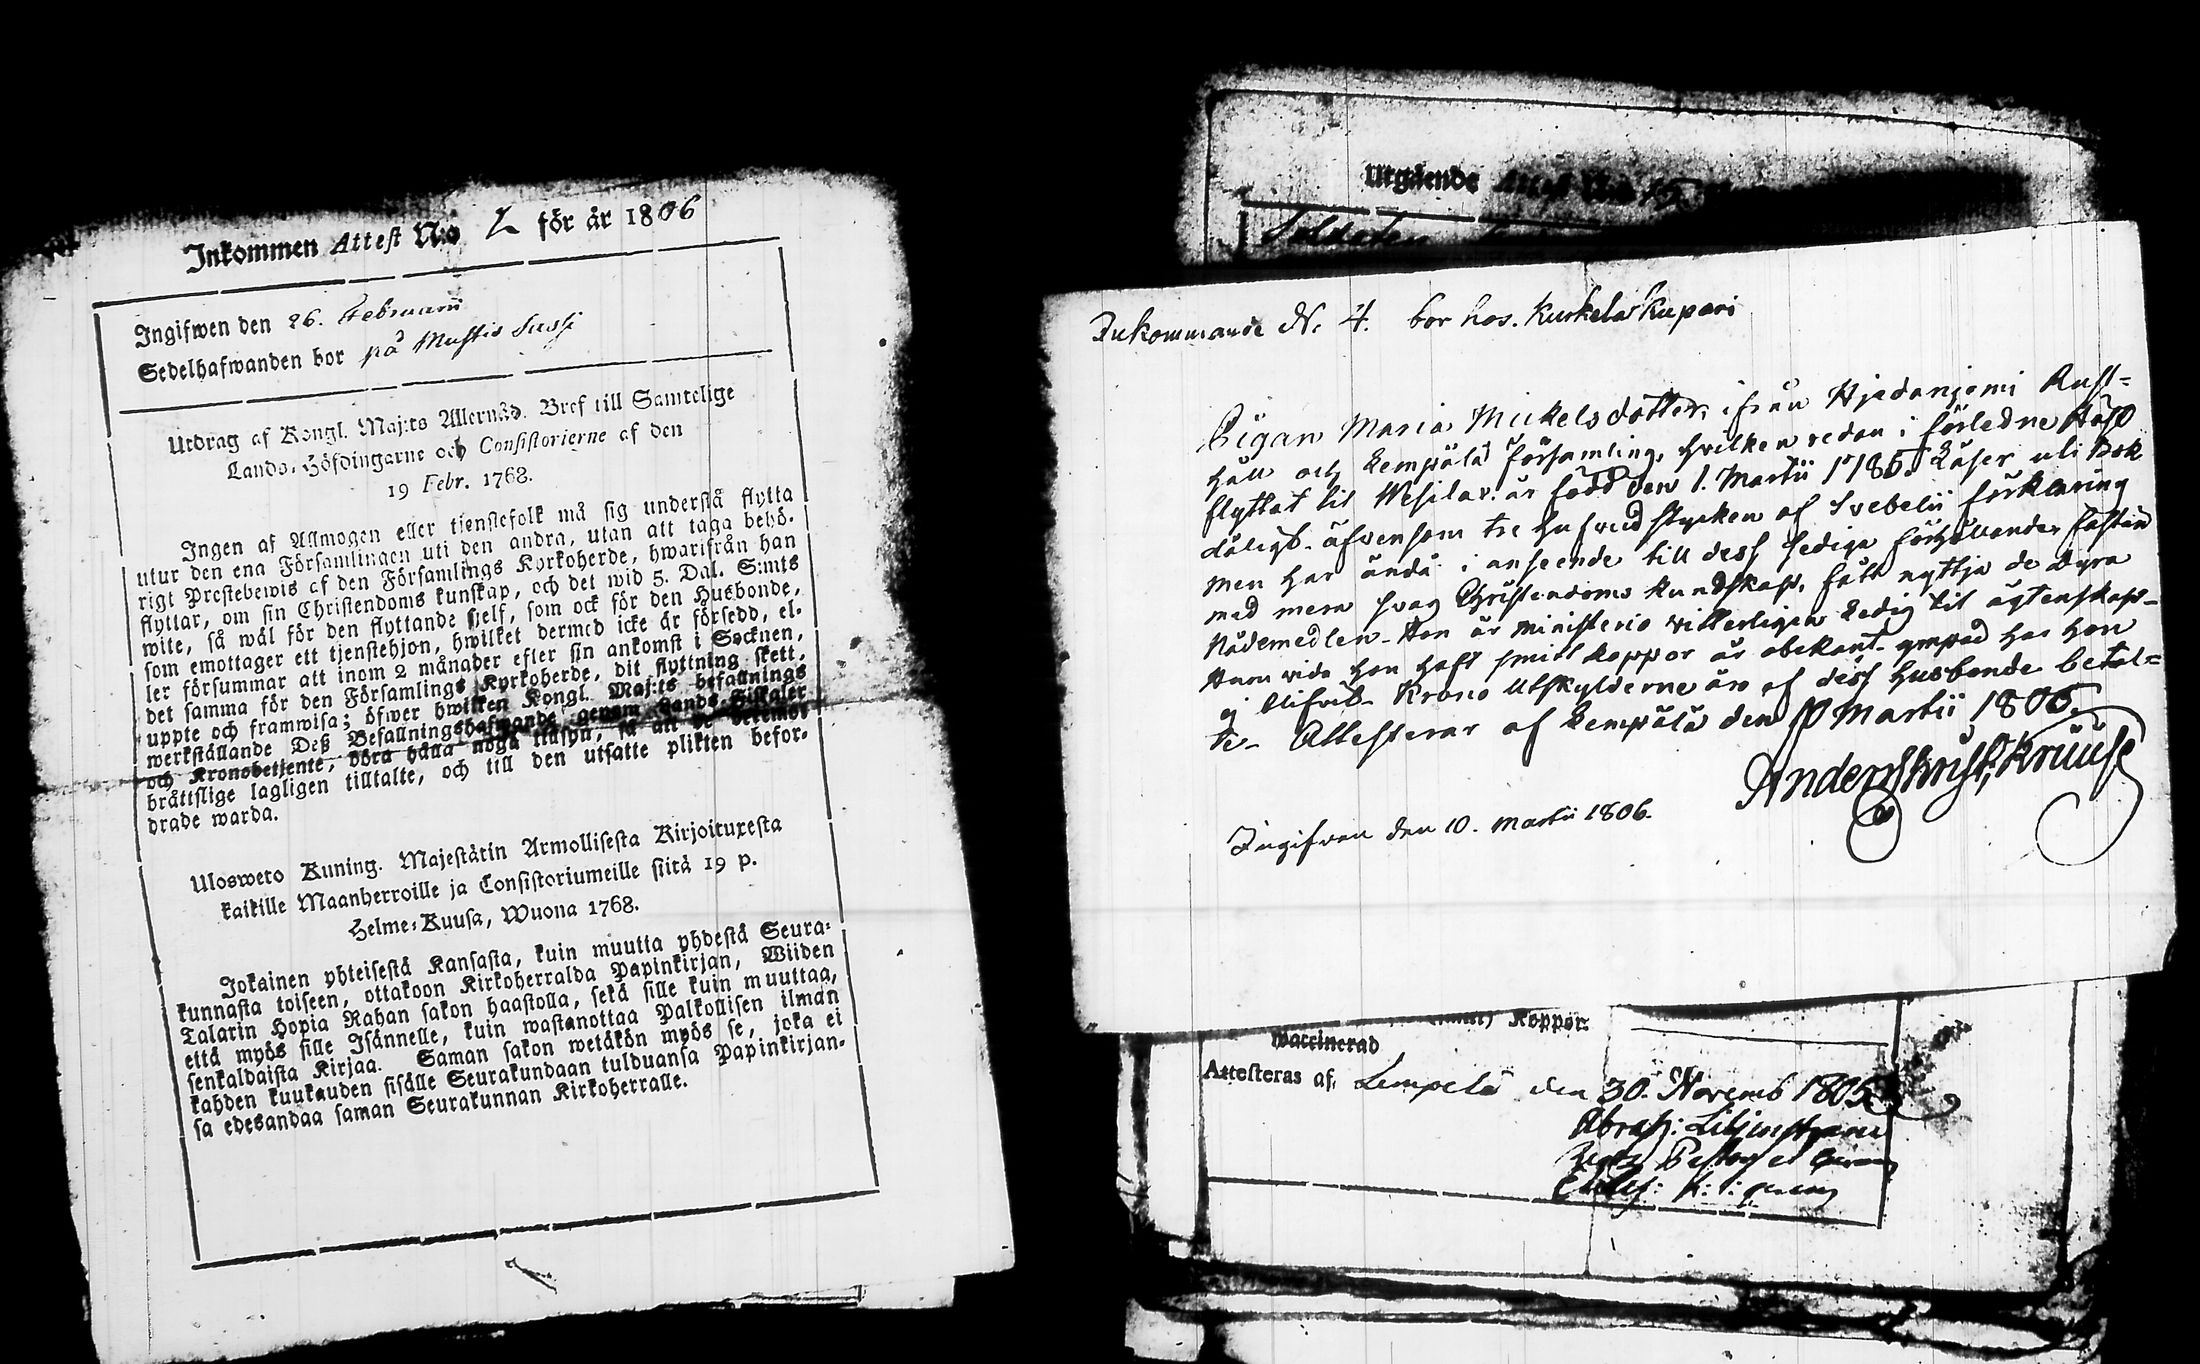 Inkommen Attest N:o 2 för år 1806
Ingifwen den 26. Februarii
Sedelhafwanden bor på Mustis Sussi
Utdrag af Kongl. Maj:ts Allernåd. Bref till Samtelige
Lands-Höfdingarne och Consistorierne af den
19 Febr. 1768.
Ingen af Allmogen eller tienstefolk må sig understå flytta
utur den ena Församlingen uti den andra, utan att taga behö-
rigt Prestebewis af den Församlings Kyrkoherde, hwarifrån han
flyttar, om sin Christendoms kunskap, och det wid 5. Dal. S:mts
wite, så wäl för den flyttande sjelf, som ock för den Husbonde,
som emottager ett tjenstehjon, hwilket dermed icke är försedd, el-
ler försummar att inom 2 månader efter sin ankomst i Socknen,
det samma för den Församlings Kyrkoherde, dit flyttning skett,
uppte och framwisa; öfwer hwilken Kongl. Maj:ts befallnings
werkställande Deß Befallningshafwande genom Lands-Fiskaler
och Kronobetjente, böra hålla noga tillsyn, så att de
bråttslige lagligen tilltalte, och till den utsatte plikten befor-
drade warda.
Ulosweto Kuning. Majestätin Armollisesta Kirjoituxesta
kaikille Maanherroille ja Consistoriumeille siitä 19 p.
Helme-Kuusa, Wuona 1768.
Jokainen yhteisestä Kansasta, kuin muutta yhdestä Seura-
kunnasta toiseen, ottakoon Kirkoherralda Papinkirjan, Wiiden
Talarin Hopia Rahan sakon haastolla, sekä sille kuin muuttaa,
että myös sille Isännelle, kuin wastanottaa Palkollisen ilman
senkaldaista Kirjaa. Saman sakon wetäkön myös se, joka ei
kahden kuukauden sisälle Seurakundaan tulduansa Papinkirjan-
sa edesandaa saman Seurakunnan Kirkoherralle.
Utgående Attest N:o
Soldaten
Inkommande N. 4. bor hos. Kurkela Kupari
Pigan Maria Mickelsdotter, ifrån Hjedanjemi Rust-
håll och Lempälä församling, hvilken redan i förledne Höst
flyttat til Wesilax. är född den 1. Martii 1785. Läser uti Bok
dåligt. äfvensom tre hufvud stycken af Svebelii förklaring
men har ändå i anseende till dess sediga förhållander fastän
med mera svag Christendoms kundskap, fått nyttja de dyra
Nådemedlen. Hon är ministerio vitterligen Ledig til ägtenskap-
Huru vida hon haft smitt koppor är obekant. ympad har hon
ej blifvit. Krono Utskylderne äro af dess husbonde betal=
te. Attesterar af Lempälä den 10 Martii 1806.
Ingifven den 10. Martii 1806.
Koppor.
waccinerad
Attesteras af Lempelä den 30. Novemb 1805